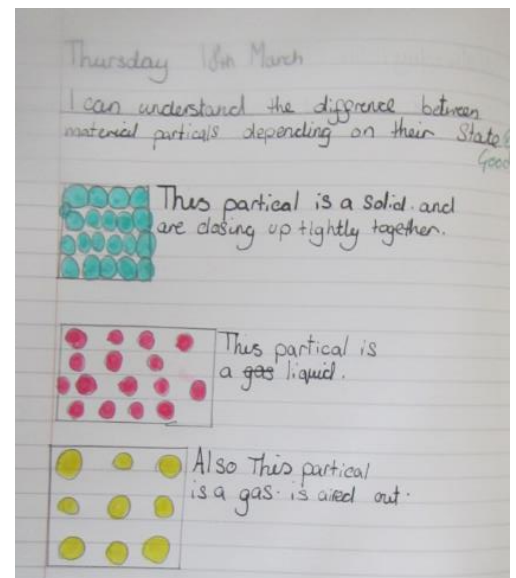 Thursday 18th March
I can understand the difference between
material particals depending on their State
Good
This partical is a solid. and
are closing up tightly together.
This partical is
a gas liquid.
Also This partical
is a gas. is aired out.